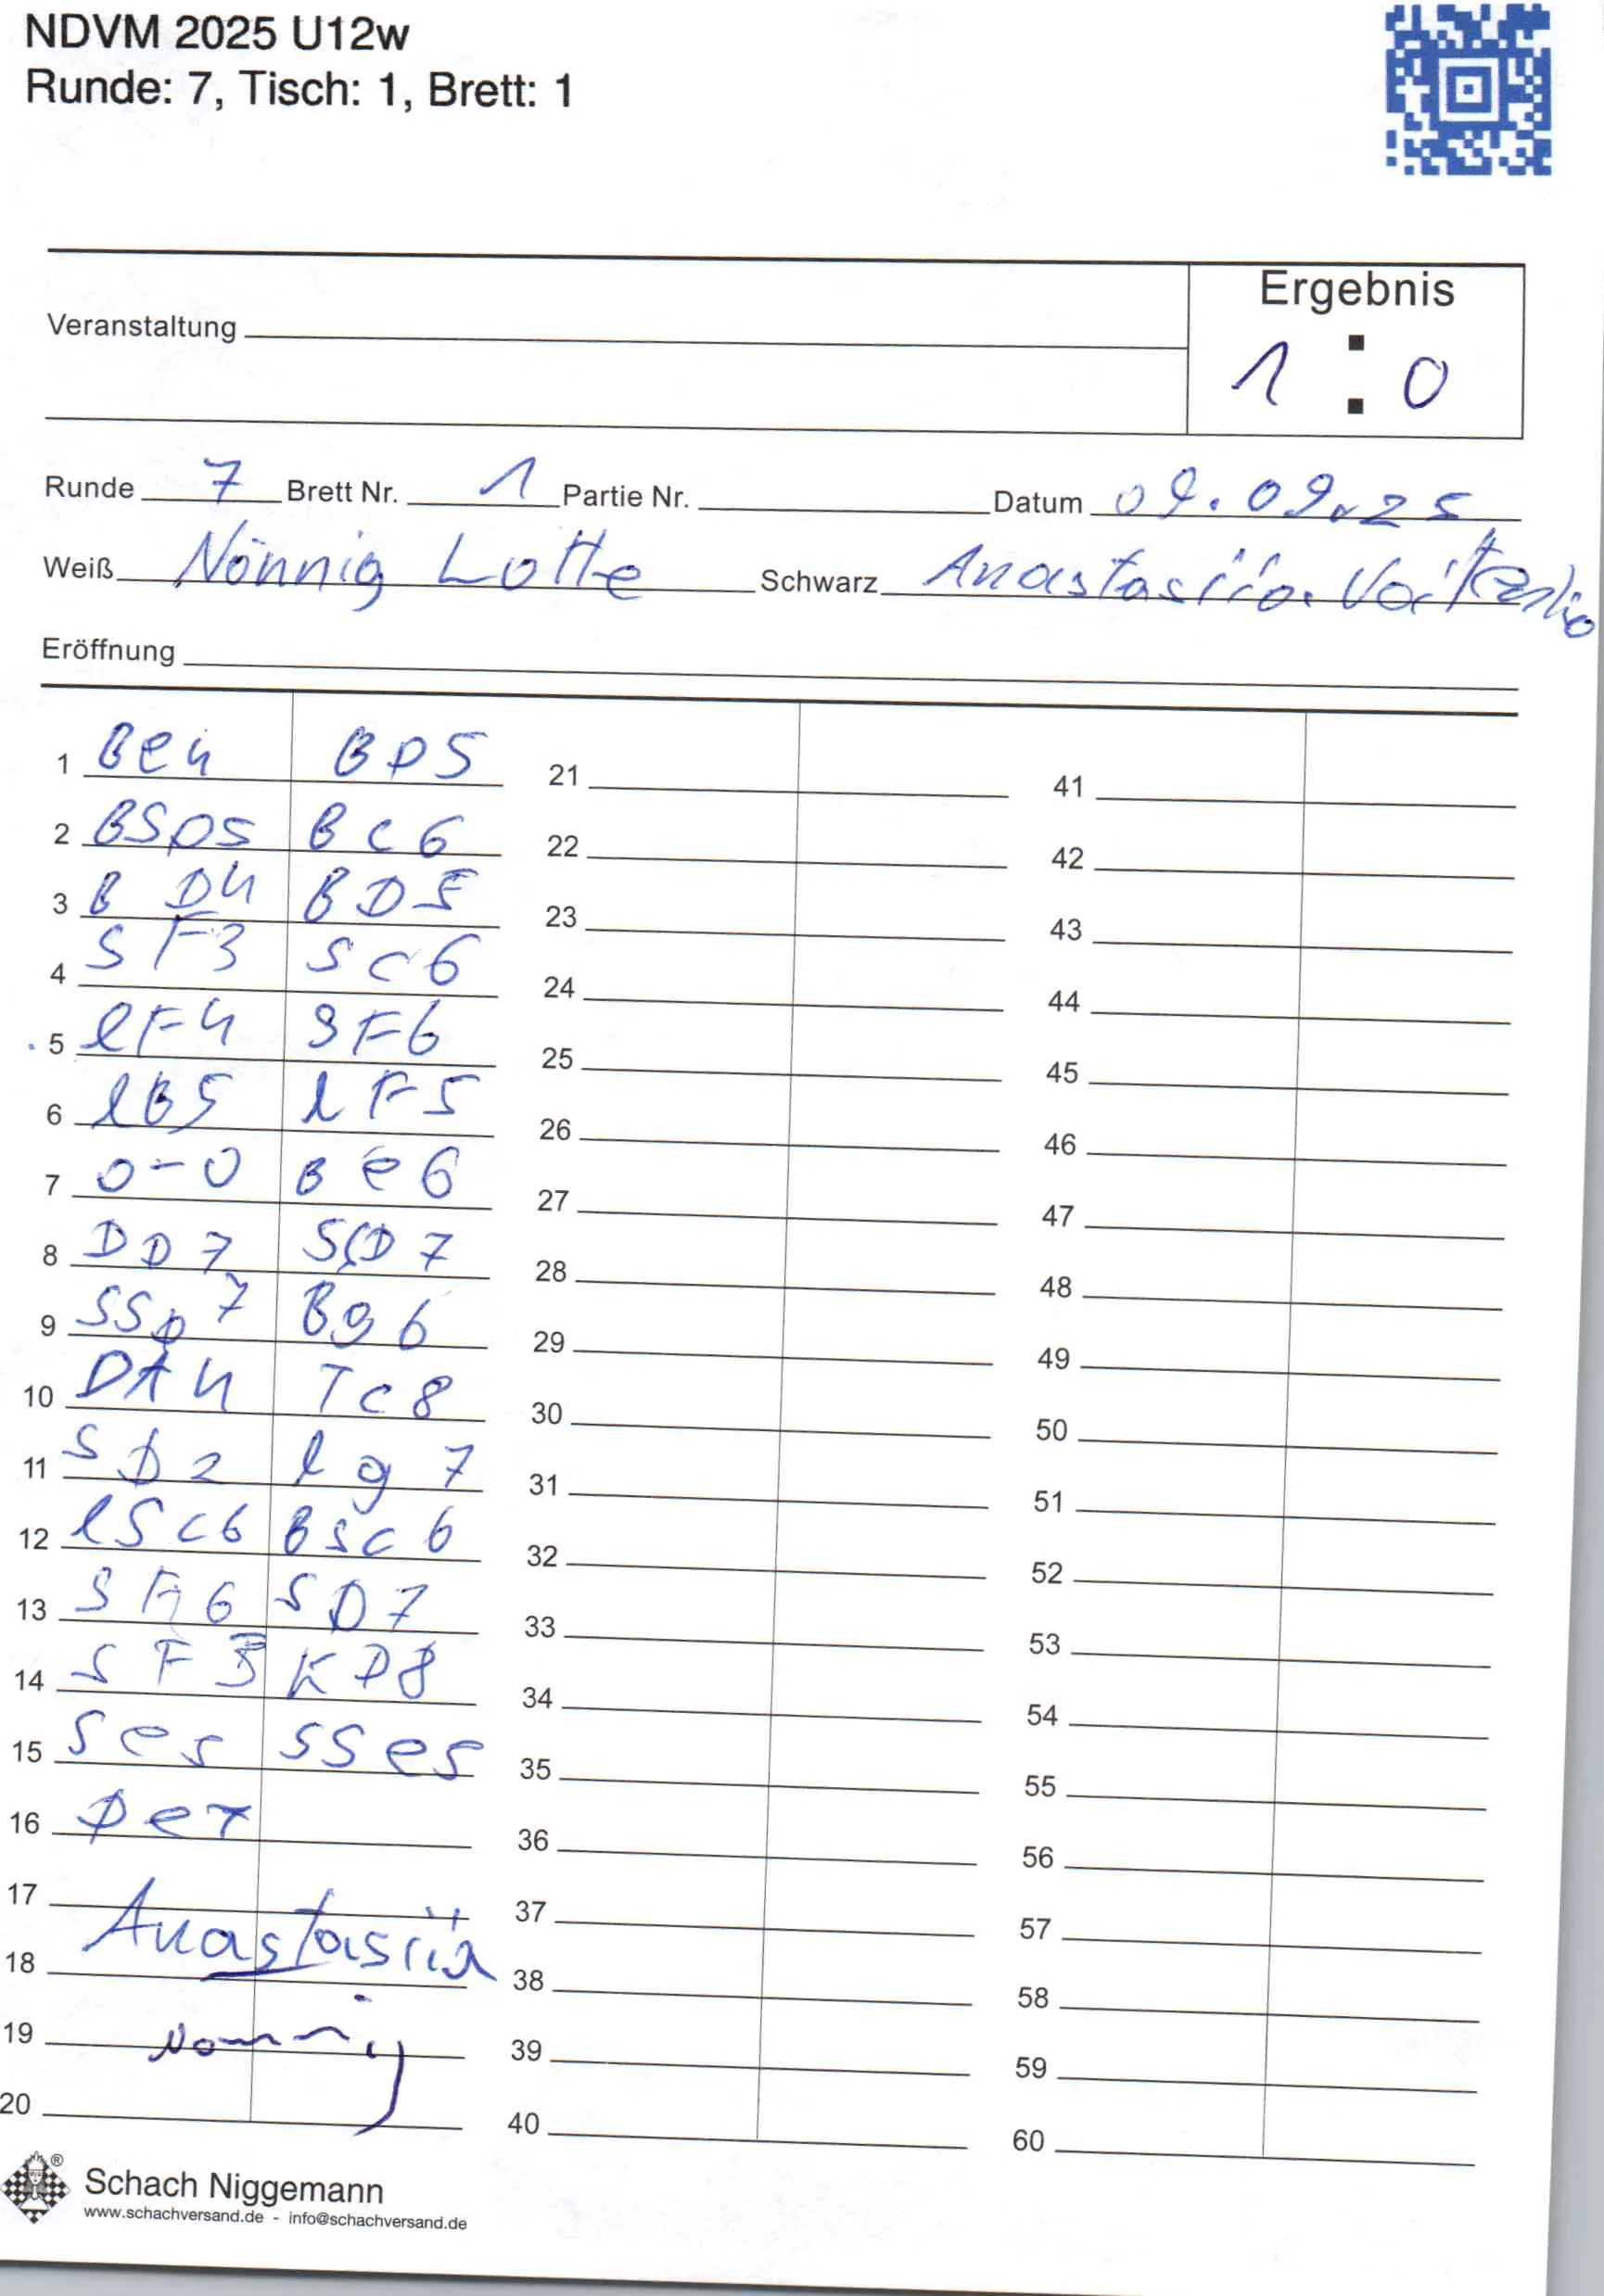 NDVM 2025 U12w
Runde: 7, Tisch: 1, Brett: 1
Ergebnis
Veranstaltung
1 : 0
Runde 7 Brett Nr. 1 Partie Nr. Datum 09.09.25
Weiß Nönnig Lotte Schwarz Anastasiia
Eröffnung
1 Be4 BD5 21 41
2 BSD5 Bc6 22 42
3 B D4 BD5 23 43
4 SF3 Sc6 24 44
5 lF4 SF6 25 45
6 lB5 lF5 26 46
7 0-0 Be6 27 47
8 DD7 SD7 28 48
9 SSD7 Bg6 29 49
10 DA4 Tc8 30 50
11 SD2 lg7 31 51
12 lSc6 BSc6 32 52
13 SA6 SD7 33 53
14 SF3 KD8 34 54
15 Se5 SSe5 35 55
16 De7 36 56
17 37 57
Anastasiia
18 38 58
19 Nönnig 39 59
20 40 60
®
Schach Niggemann
www.schachversand.de - info@schachversand.de